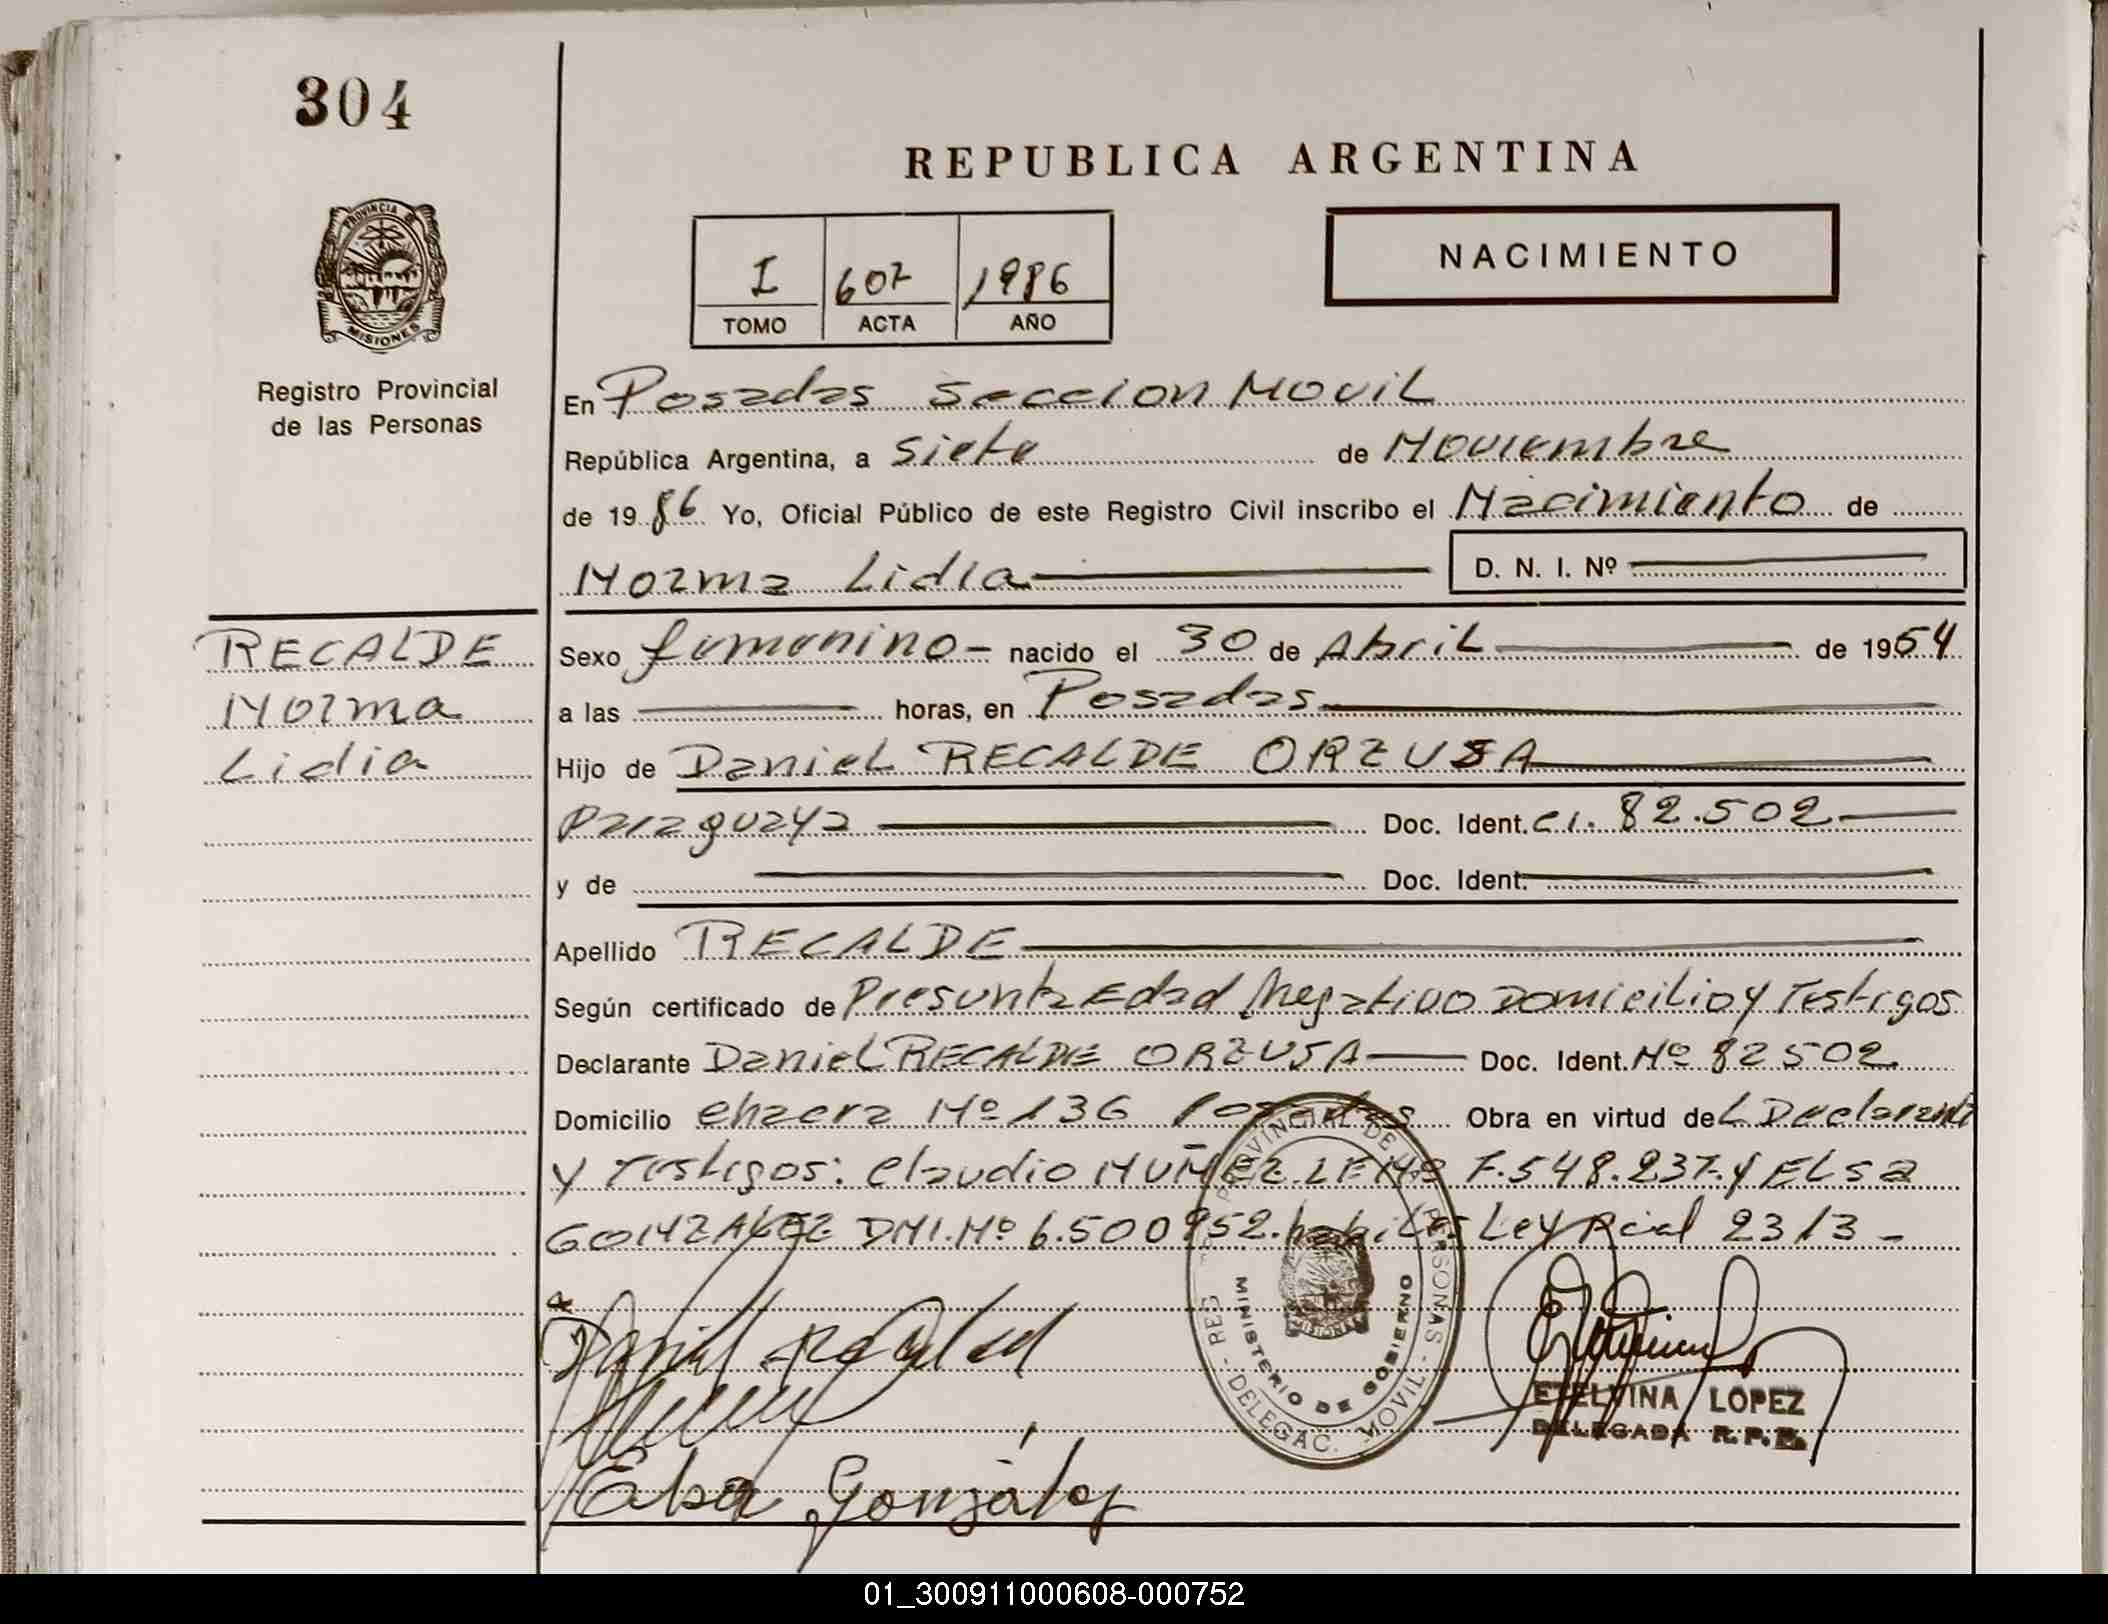 304
REPUBLICA ARGENTINA
PROVINCIA DE
MISIONES
Registro Provincial
de las Personas
I 607 1986
TOMO ACTA AÑO
NACIMIENTO
En Posadas Seccion Movil
República Argentina, a Siete de Noviembre
de 1986 Yo, Oficial Público de este Registro Civil inscribo el Nacimiento de
Norma Lidia D. N. I. Nº
RECALDE
Norma
Lidia
Sexo femenino - nacido el 30 de Abril de 1964
a las horas, en Posadas
Hijo de Daniel RECALDE ORZUSA
Paraguaya Doc. Ident. CI. 82.502
y de Doc. Ident.
Apellido RECALDE
Según certificado de Presunta Edad Negativo Domicilio y Testigos
Declarante Daniel RECALDE ORZUSA Doc. Ident. Nº 82502
Domicilio Chacra Nº 136 Posadas Obra en virtud del Declarante
y Testigos: Claudio NUÑEZ LEMO 7.548.237. y Elsa
GONZALEZ DNI. Nº 6.500952. habiles Ley Pcial 2313 -
Daniel Recalde
Elsa González
PROVINCIAL DE LAS PERSONAS - DELEGAC. MOVIL - RES
MINISTERIO DE GOBIERNO
MISIONES
ETELVINA LOPEZ
DELEGADA R.P.P.
01_300911000608-000752